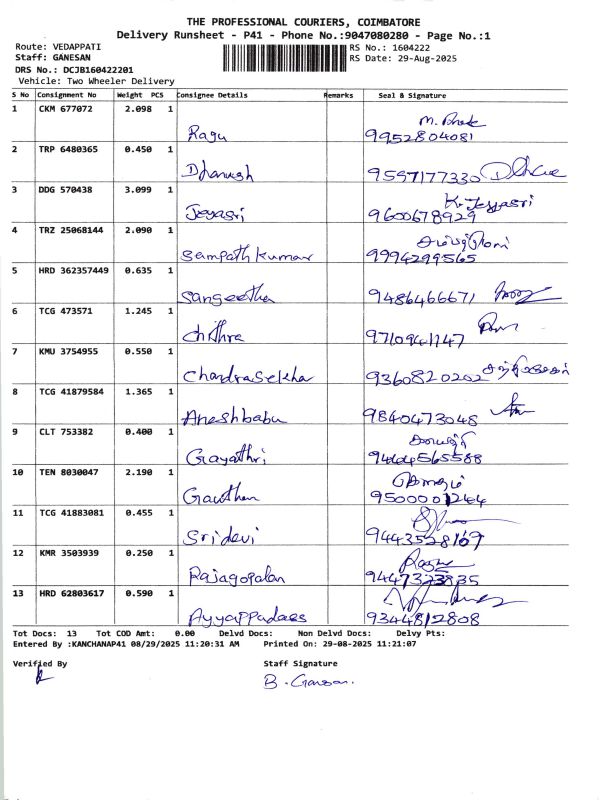 THE PROFESSIONAL COURIERS, COIMBATORE
Delivery Runsheet - P41 - Phone No.:9047080280 - Page No.:1
Route: VEDAPPATI RS No.: 1604222
Staff: GANESAN RS Date: 29-Aug-2025
DRS No.: DCJB160422201
Vehicle: Two Wheeler Delivery
S No Consignment No Weight PCS Consignee Details Remarks Seal & Signature
1 CKM 677072 2.098 1
Ragu 9952804081
2 TRP 6480365 0.450 1
Dhanush 9597177330
3 DDG 570438 3.099 1
K. Jeyasri
Jeyasri 9600678929
4 TRZ 25068144 2.090 1
Sampath kumar 9994299565
5 HRD 362357449 0.635 1
Sangeetha 9486466671
6 TCG 473571 1.245 1
Chithra 9710941147
7 KMU 3754955 0.550 1
Chandrasekhar 9360820202
8 TCG 41879584 1.365 1
Aneshbabu 9840473048
9 CLT 753382 0.400 1
Gayathri 9444565588
10 TEN 8030047 2.190 1
Gauthan 9500001244
11 TCG 41883081 0.455 1
Sridevi 9443528169
12 KMR 3503939 0.250 1
Rajagopalan
13 HRD 62803617 0.590 1
Ayyappadass 9344812808
Tot Docs: 13 Tot COD Amt: 0.00 Delvd Docs: Non Delvd Docs: Delvy Pts:
Entered By :KANCHANAP41 08/29/2025 11:20:31 AM Printed On: 29-08-2025 11:21:07
Verified By Staff Signature
B. Ganesan.